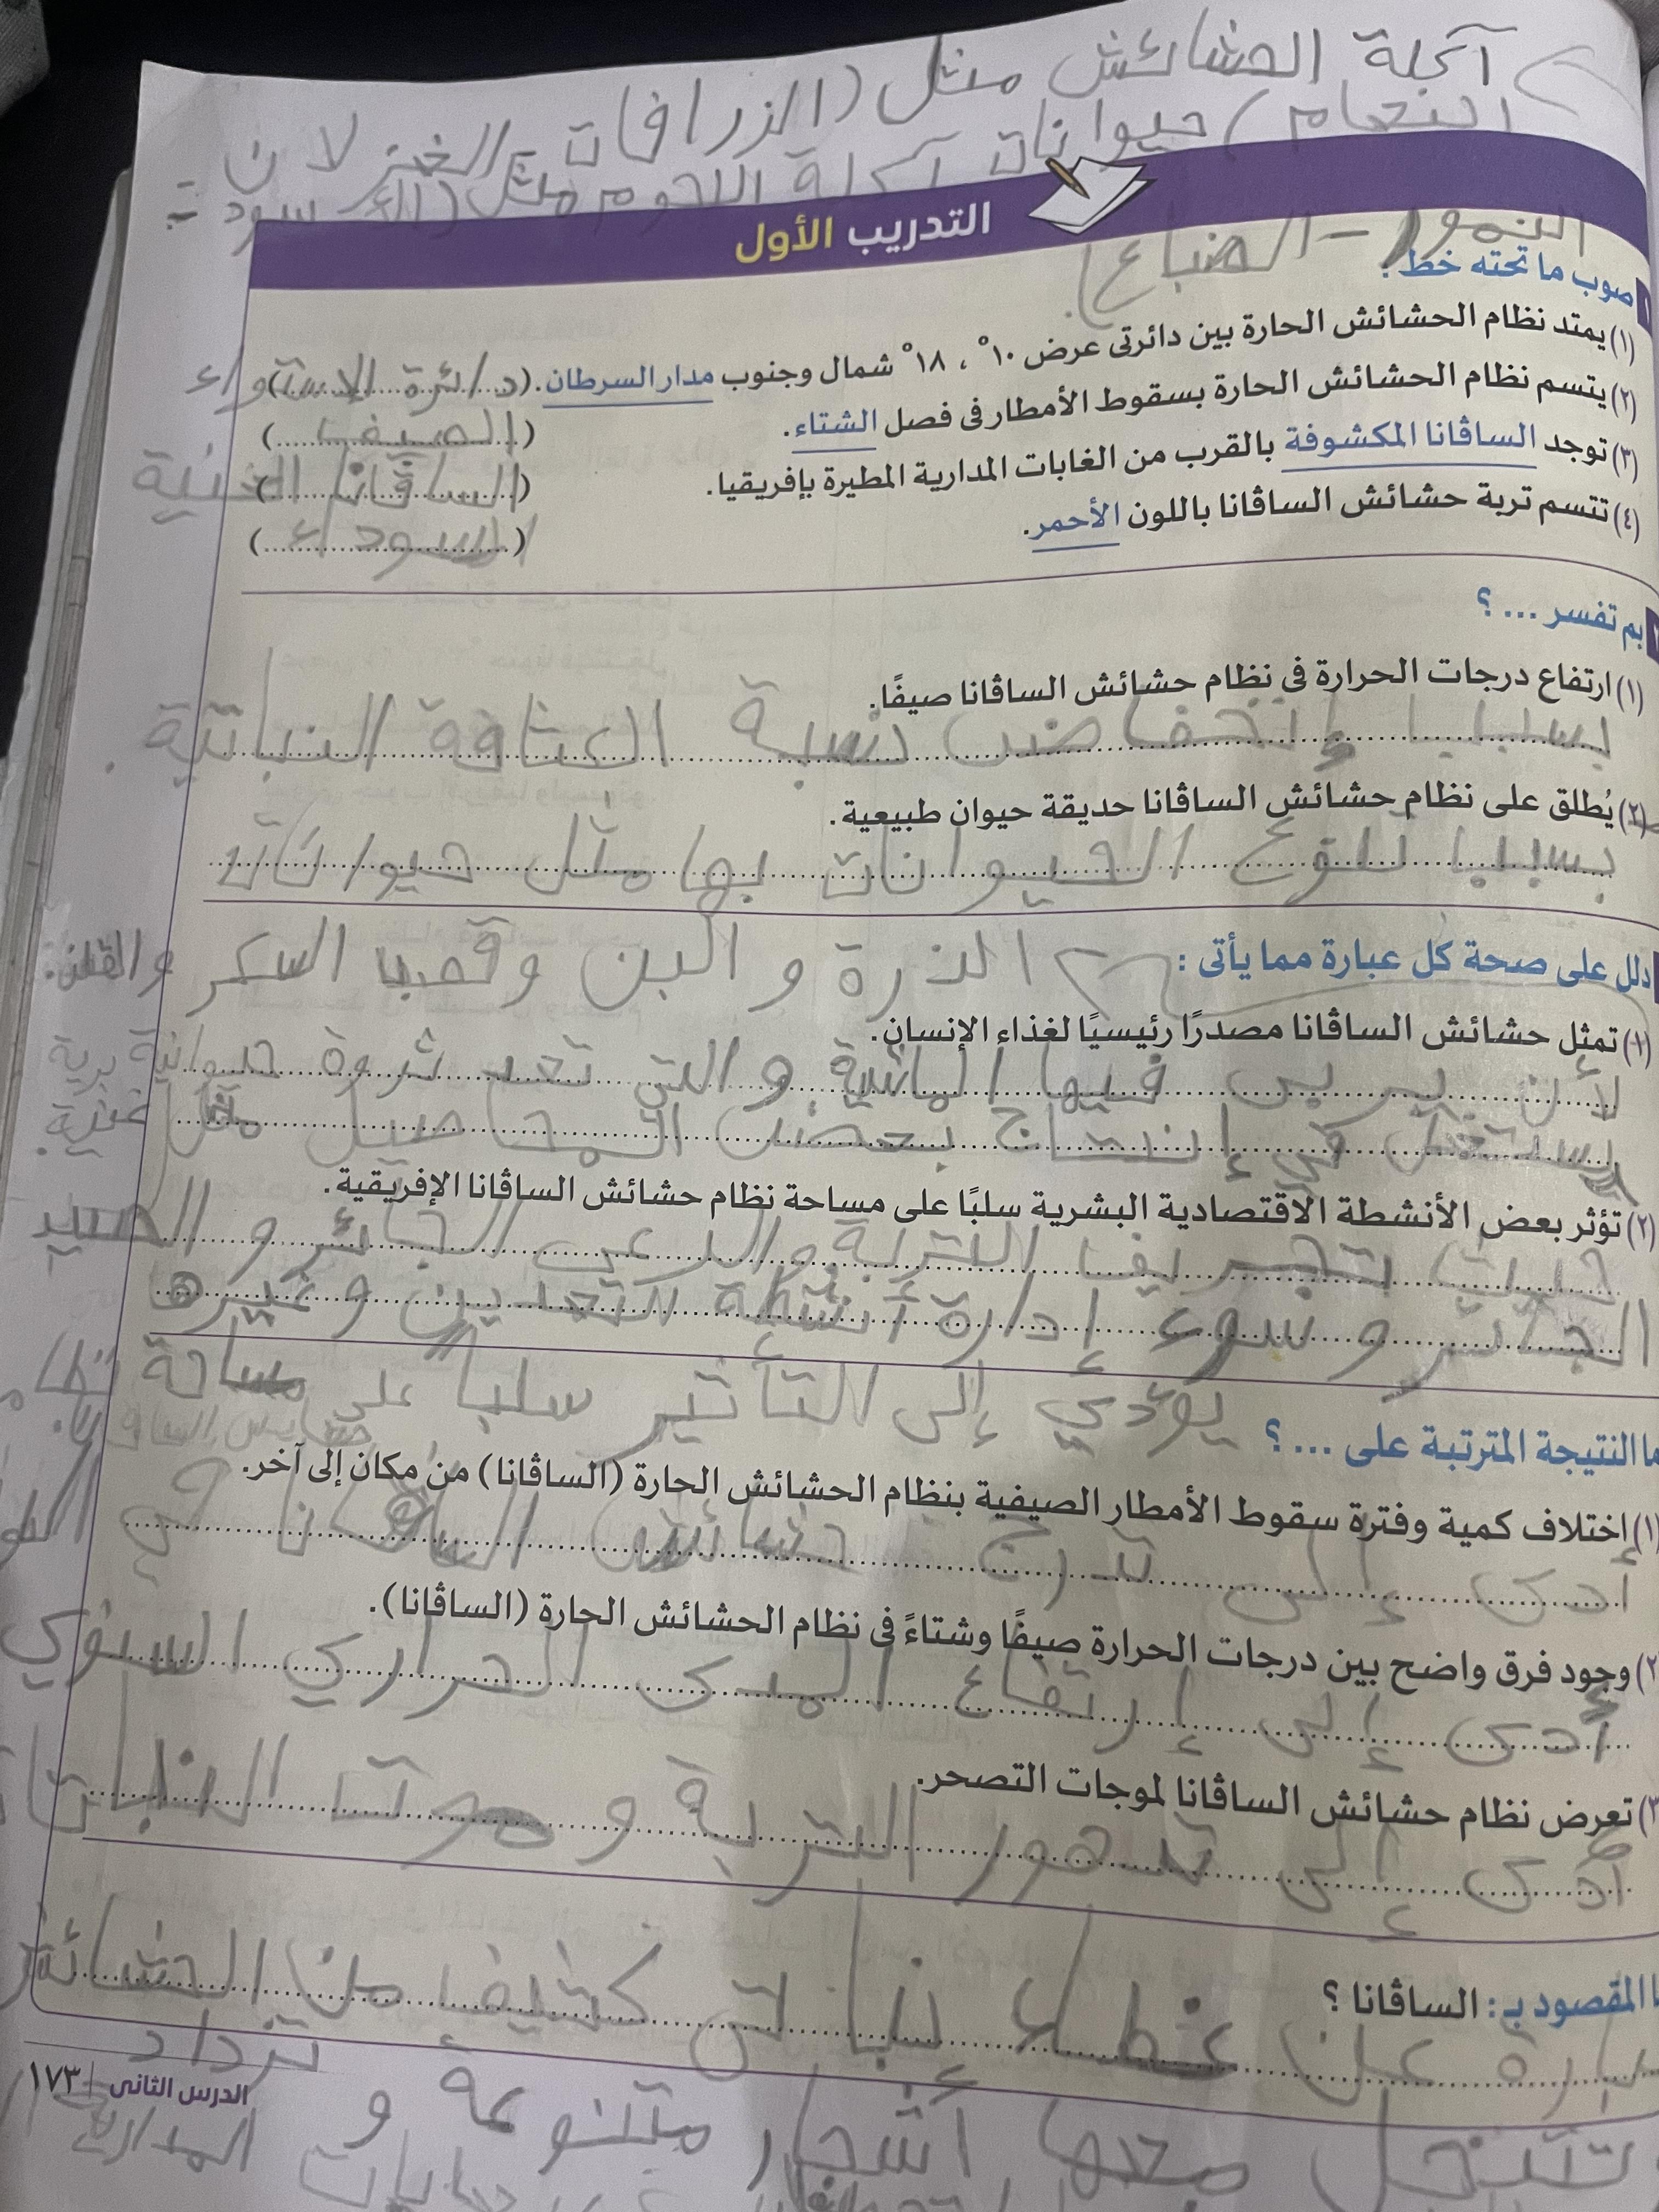 آكلة الحشائش مثل (الزرافات - الغزلان -
النعام) حيوانات آكلة اللحوم مثل (الأسود -
النمور - الضباع)
التدريب الأول
صوب ما تحته خط :
(١) يمتد نظام الحشائش الحارة بين دائرتى عرض ١٠° ، ١٨° شمال وجنوب مدار السرطان. (دائرة الاستواء)
(٢) يتسم نظام الحشائش الحارة بسقوط الأمطار فى فصل الشتاء. (الصيف)
(٣) توجد الساڤانا المكشوفة بالقرب من الغابات المدارية المطيرة بإفريقيا. (الساڤانا الغنية)
(٤) تتسم تربة حشائش الساڤانا باللون الأحمر. (السوداء)
بم تفسر ... ؟
(١) ارتفاع درجات الحرارة فى نظام حشائش الساڤانا صيفًا.
بسبب إنخفاض نسبة الكثافة النباتية.
(٢) يُطلق على نظام حشائش الساڤانا حديقة حيوان طبيعية.
بسبب تنوع الحيوانات بها مثل حيوانات
دلل على صحة كل عبارة مما يأتى :
الذرة و البن وقصب السكر والقطن.
(١) تمثل حشائش الساڤانا مصدرًا رئيسيًا لغذاء الإنسان.
لأن يربى فيها الماشية والتي تعد ثروة حيوانية برية غنية.
تستغل في إنتاج بعض المحاصيل مثل
(٢) تؤثر بعض الأنشطة الاقتصادية البشرية سلبًا على مساحة نظام حشائش الساڤانا الإفريقية.
حيث تجريف التربة والرعى الجائر و الصيد
الجائر و سوء إدارة أنشطة التعدين وغيره
يؤدي إلى التأثير سلباً على مساحة نظام
حشايش الساڤانا.
ما النتيجة المترتبة على ... ؟
(١) اختلاف كمية وفترة سقوط الأمطار الصيفية بنظام الحشائش الحارة (الساڤانا) من مكان إلى آخر.
أدى إلى تدرج حشائش الساڤانا في
(٢) وجود فرق واضح بين درجات الحرارة صيفًا وشتاءً فى نظام الحشائش الحارة (الساڤانا).
أدى إلى إرتفاع المدى الحراري السنوي
(٣) تعرض نظام حشائش الساڤانا لموجات التصحر.
أدى إلى تدهور التربة و موت النباتات
ما المقصود بـ : الساڤانا ؟
عبارة عن غطاء نباتى كثيف من الحشائش
تتخلل معها أشجار متنوعة و تزداد
الدرس الثانى ١٧٣